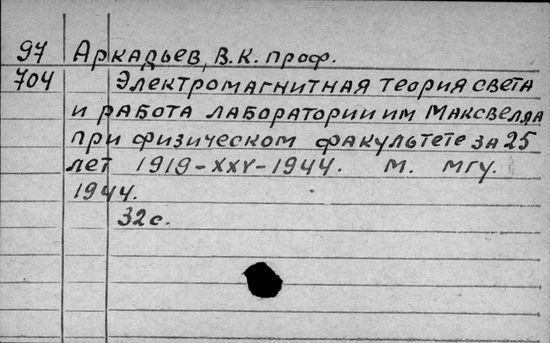 97 Аркадьев, В.К. проф.
704 Электромагнитная теория света
и работа лаборатории им Максвелла
при физическом факультете за 25
лет 1919-XXV-1944. М. МГУ.
1944.
32 с.